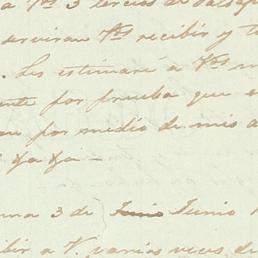 a Vs 3 tercios de
serviran Vs recibir y t
. Les estimaré a Vs m
nte por prueba que e
au por medio de mis a
&a &a —
una 3 de Junio Junio
bir a V. varias veces de